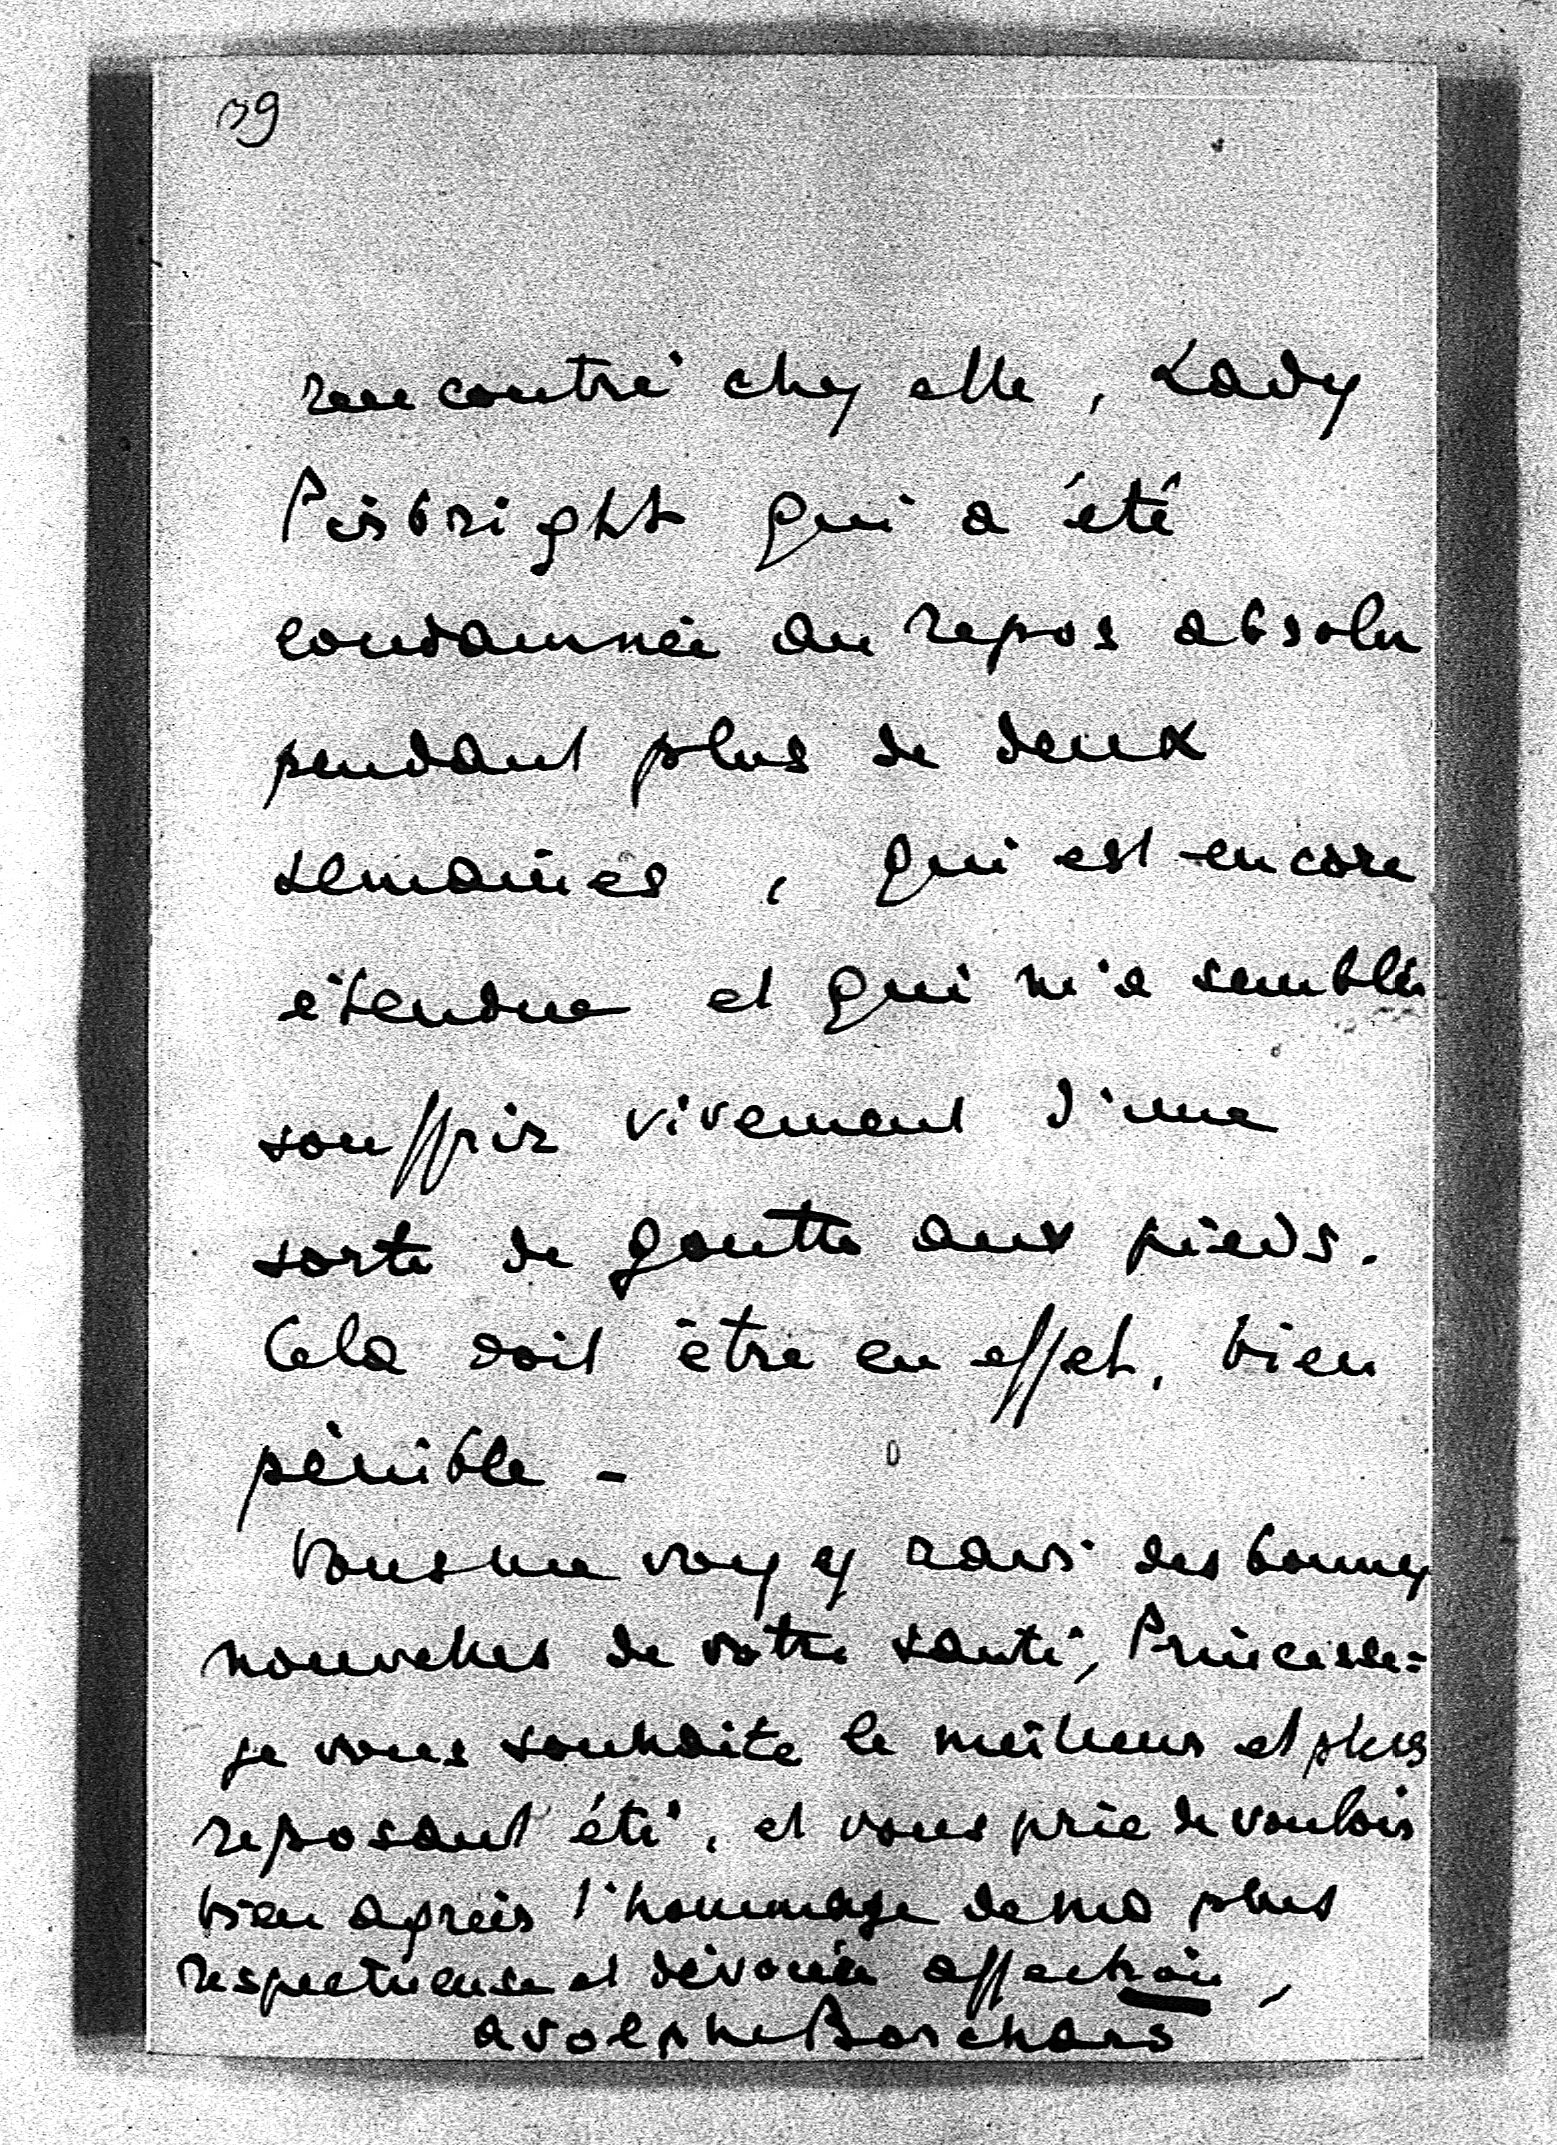 39
rencontré chez elle, Lady
Pirbright qui a été
condamnée au repos absolu
pendant plus de deux
semaines, qui est encore
étendue et qui m'a semblé
souffrir vivement d'une
sorte de goutte aux pieds.
Cela doit être en effet, bien
pénible -
Vous me voyez ravi des bonnes
nouvelles de votre santé, Princesse =
je vous souhaite le meilleur et plus
reposant été, et vous prie de vouloir
bien agréer l'hommage de ma plus
respectueuse et dévouée affection,
Adolphe Borchard